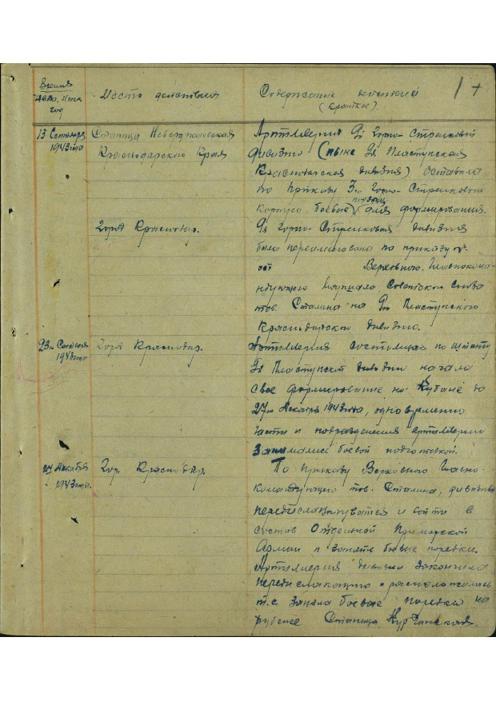 Время
год
Место действия
Содержание событий
(кратко)
1
13 Сентября
1943 года
Станица
Краснодарского Края
Артиллерия 9й Горно-Стрелковой
дивизии (ныне 9я Пластунская
Краснодарская дивизия) оставила
по приказу 3го Горно-Стрелкового
корпуса боевые порядки для формирования.
Город Краснодар.
9я Горно-Стрелковая дивизия
была переименована по приказу
от Верховного Главноком-
андующего Маршала Советского Союза
тов. Сталина на 9ю Пластунскую
Краснодарскую дивизию.
23го Сентября
1943 года
Город Краснодар.
Артиллерия состоящая по штату
9й Пластунской дивизии начала
свое формирование на Кубане до
27го декабря 1943 года, одновременно
части и подразделения артиллерии
занимались боевой подготовкой.
27 декабря
1943 года.
гор. Краснодар.
По приказу Верховного Главно-
командующего тов. Сталина, дивизии
передислоцироваться и войти в
состав Отдельной Приморской
Армии и занять боевые порядки.
Артиллерия дивизии закончила
передислокацию и расположилась
т.е. заняла боевые порядки на
рубеже Станица Курчанская.